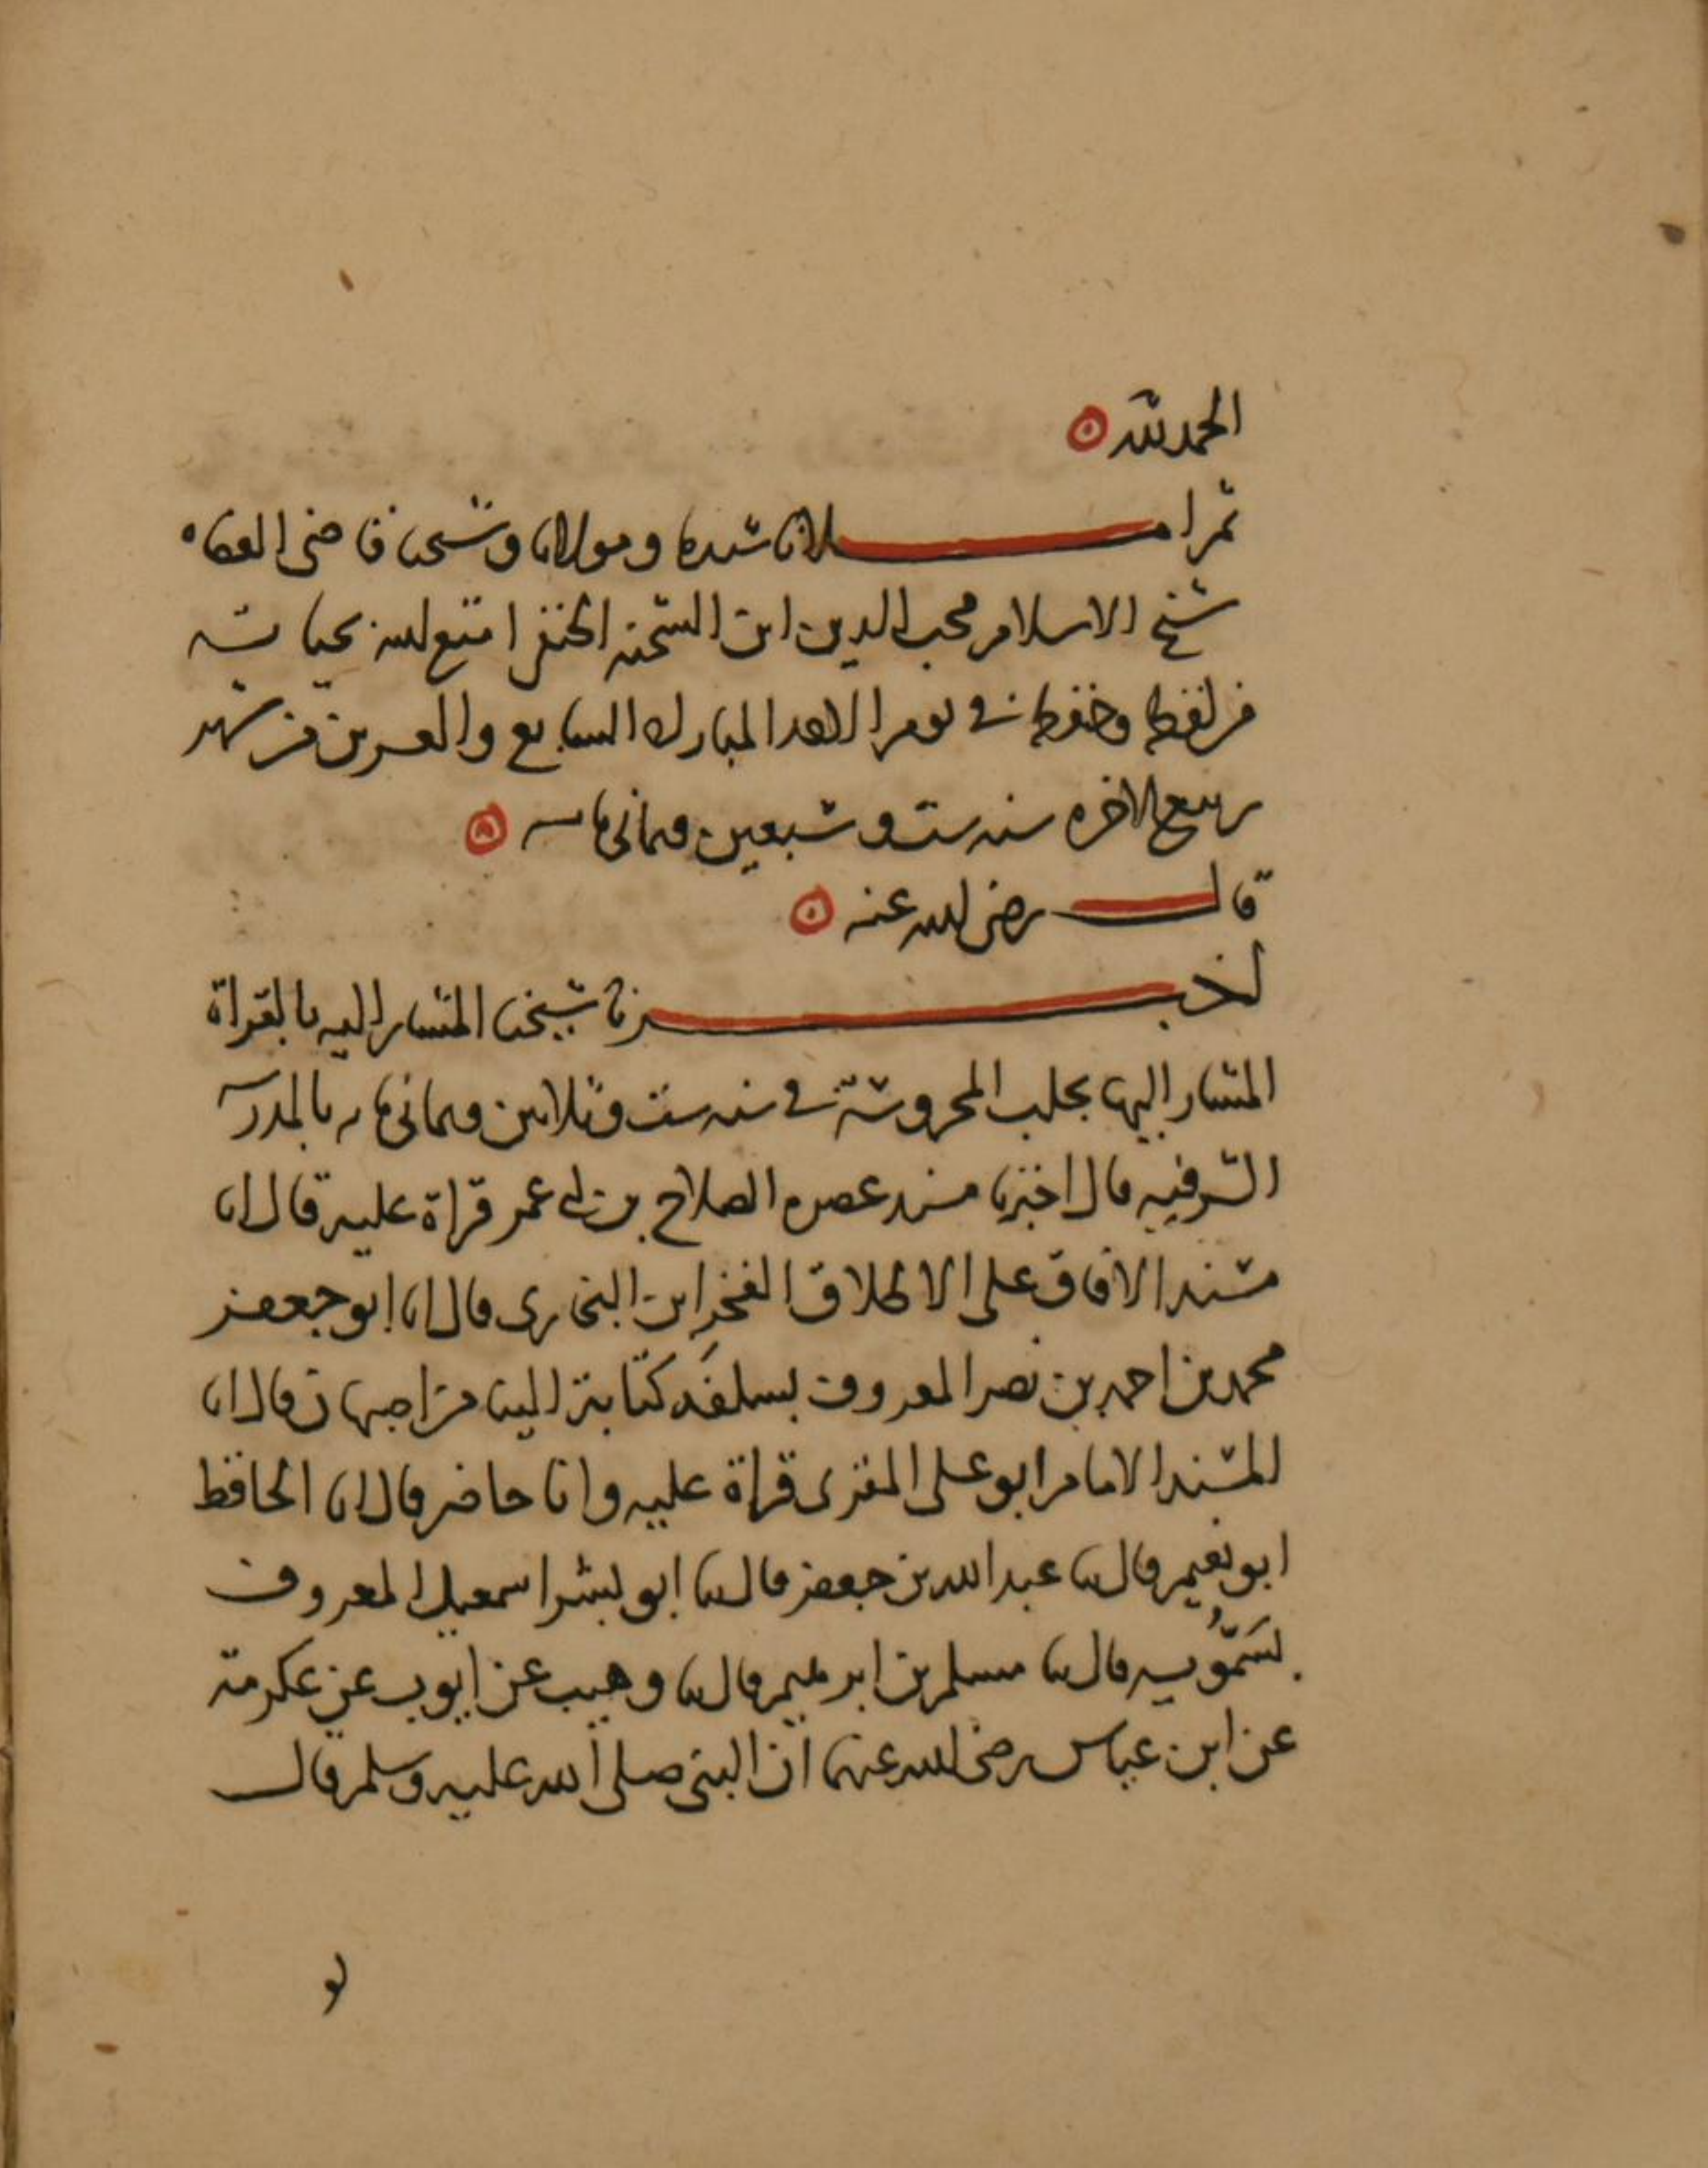 الحمد لله
ثم املانا سيدنا ومولانا وشيخنا قاضى القضاه
شيخ الاسلام محب الدين ابن الشحنه الحنفي امتع الله بحياته
من لفظه وحفظه في يوم الاحد المبارك السابع والعشرين من شهر
ربيع الاخره سنه ست وسبعين وثماني مايه
قال رضى الله عنه
اخبرنا شيخنا المشار اليه بالقراة
المشار اليها بحلب المحروسة في سنه ست وثلاثين وثماني مايه بالمدرسه
الشرفيه قال اخبرنا مسند عصره الصلاح بن ابي عمر قراة عليه قال انا
مسند الافاق على الاطلاق الفخر ابن البخارى قال انا ابو جعفر
محمد بن احمد بن نصر المعروف بسلفه كتابة الينا من اصبهان قال انا
المسند الامام ابو على المقرى قراة عليه وانا حاضر قال انا الحافظ
ابو نعيم قال ثنا عبد الله بن جعفر قال ثنا ابو بشر اسمعيل المعروف
بسَمُّويه قال ثنا مسلم بن ابرهيم قال ثنا وهيب عن ايوب عن عكرمة
عن ابن عباس رضى الله عنهما ان النبي صلى الله عليه وسلم قال
لو